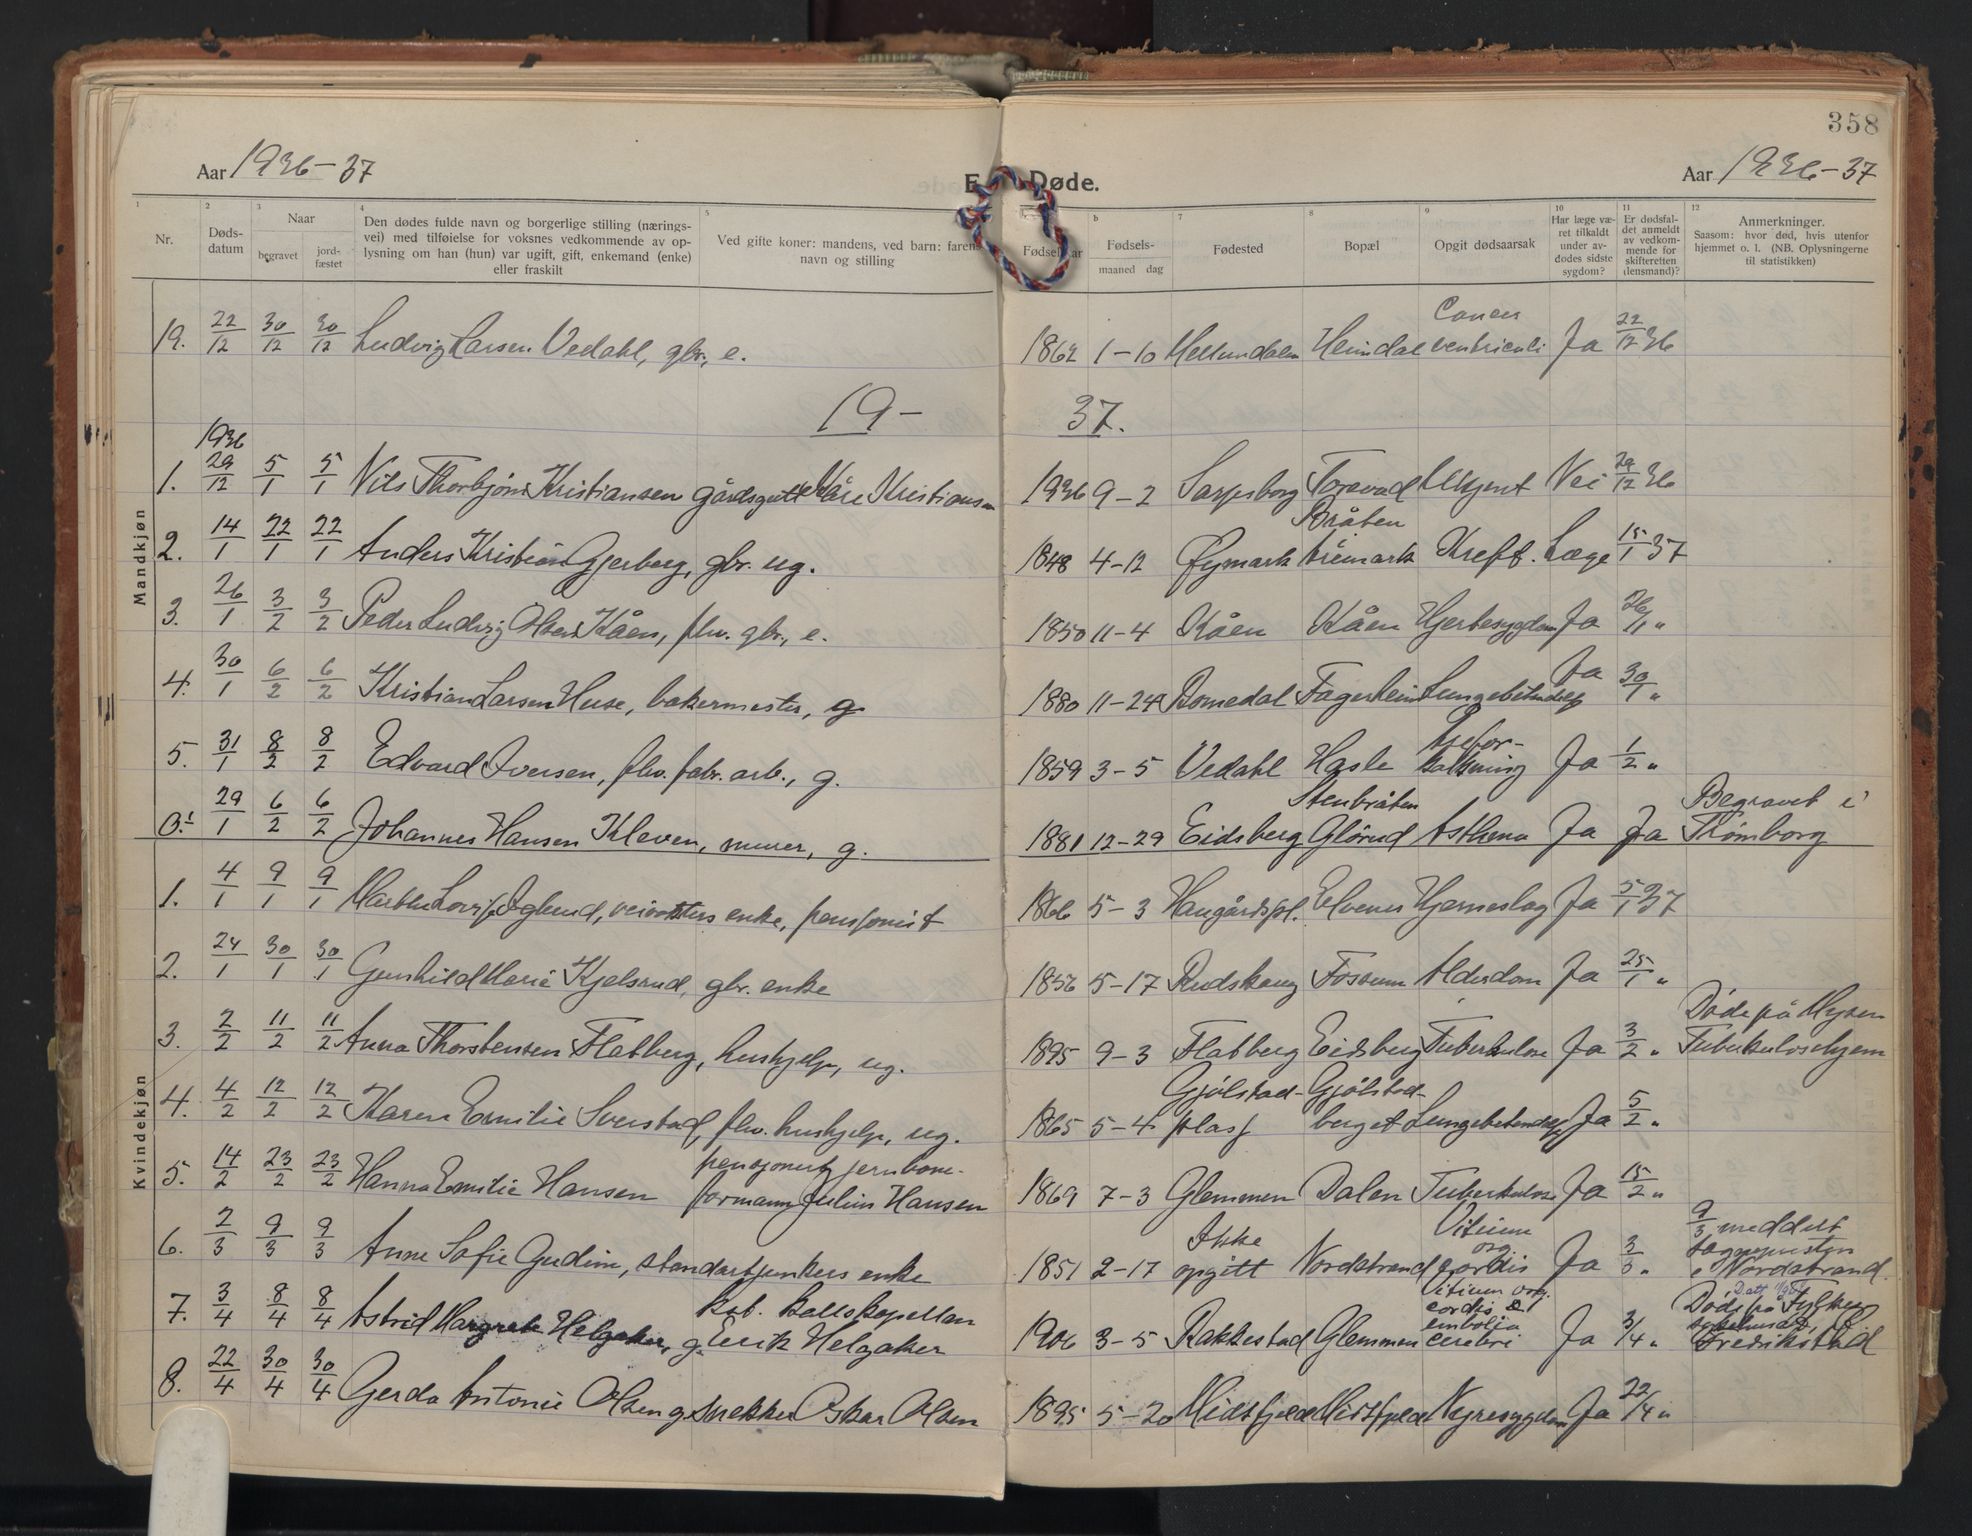 358
Aar 1936-37
E. Døde.
Aar 1936-37
1 2 3 4 5 b 7 8 9 10 11 12
Nr.
Døds-
datum
Naar
begravet
jord-
fæstet
Den dødes fulde navn og borgerlige stilling (nærings-
vei) med tilføielse for voksnes vedkommende av op-
lysning om han (hun) var ugift, gift, enkemand (enke)
eller fraskilt
Ved gifte koner: mandens, ved barn: farens
navn og stilling
Fødselsaar
Fødsels-
maaned dag
Fødested
Bopæl
Opgit dødsaarsak
Har læge væ-
ret tilkaldt
under av-
dødes sidste
sygdom?
Er dødsfal-
det anmeldt
av vedkom-
mende for
skifteretten
(lensmand)?
Anmerkninger.
Saasom: hvor død, hvis utenfor
hjemmet o. l. (NB. Oplysningerne
til statistikken)
19. 22/12 30/12 30/12 Ludvig Larsen Vedahl, gbr., e. 1862 1-10 Heimdal Cancer ventriculi Ja 22/12 36
19- 37.
Mandkjøn
1936
1. 29/12 5/1 5/1 Nils Thorbjørn Kristiansen gårdsgutt Kåre Kristiansen 1936 9-2 Sarpsborg Ukjent Nei 29/12 36
2. 14/1 22/1 22/1 Anders Kristian Gjerberg, gbr. ug. 1848 4-12 Øymark Bråten Kreft. Læge 15/1 37
3. 26/1 3/2 3/2 Peder Ludvig Olsen Kåen, fhv. gbr., e. 1850 11-4 Kåen Kåen Hjertesygdom Ja 26/1 "
4. 30/1 6/2 6/2 Kristian Larsen Huse, bakermester, g. 1880 11-24 Romedal Fagerheim Lungebetendelse Ja 30/1 "
5. 31/1 8/2 8/2 Edvard Iversen, fhv. fabr. arb., g. 1859 3-5 Vedahl Hasle Årefor-
kalkning Ja 1/2 "
0. 29/1 6/2 6/2 Johannes Hansen Kleven, murer, g. 1881 12-29 Eidsberg Stenbråten
Glørud Asthma Ja Ja Begravet i
Trømborg
Kvindekjøn
1. 4/1 9/1 9/1 enke, pensjonist 1866 5-3 Haugårdspl. Elvenes Hjerneslag Ja 5/1 37
2. 24/1 30/1 30/1 Gunhild Marie Kjelsrud, gbr. enke 1856 5-17 Rudskaug Fossum Alderdom Ja 25/1 "
3. 2/2 11/2 11/2 Anna Thorstensen Flatberg, hushjelp, ug. 1895 9-3 Flatberg Eidsberg Tuberkulose Ja 3/2 " Døde på Mysen
Tuberkulosehjem
4. 4/2 12/2 12/2 Karen Emilie Sverstad, fhv. hushjelp, ug. 1865 5-4 Gjølstad-
plass Gjølstad-
berget Lungebetendelse Ja 5/2 "
5. 14/2 23/2 23/2 Hanna Emilie Hansen pensjonert jernbane-
formann Julius Hansen 1869 7-3 Glemmen Dalen Tuberkulose Ja 15/2 "
6. 2/3 9/3 9/3 Anne Sofie Gudim, standartjunkers enke 1851 2-17 Ikke
opgitt Nordstrand Vitium
org.
cordis Ja 3/3 " 9/3 meddelt
sognepresten
i Nordstrand.
7. 3/4 8/4 8/4 Astrid Margrete Helgaker, g. kat. kallskapellan
Eirik Helgaker 1906 3-5 Rakkestad Glemmen Vitium org.
cordis &
embolia
cerebri Ja 3/4 " Døde på Fylkes
sykehuset,
Fredrikstad
8. 22/4 30/4 30/4 Gerda Antonie Olsen g. snekker Oskar Olsen 1895 5-20 Midtfjeld Midtfjeld Nyresygdom Ja 22/4 "